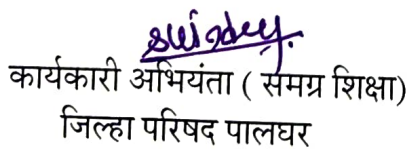 कार्यकारी अभियंता ( समग्र शिक्षा)
जिल्हा परिषद पालघर